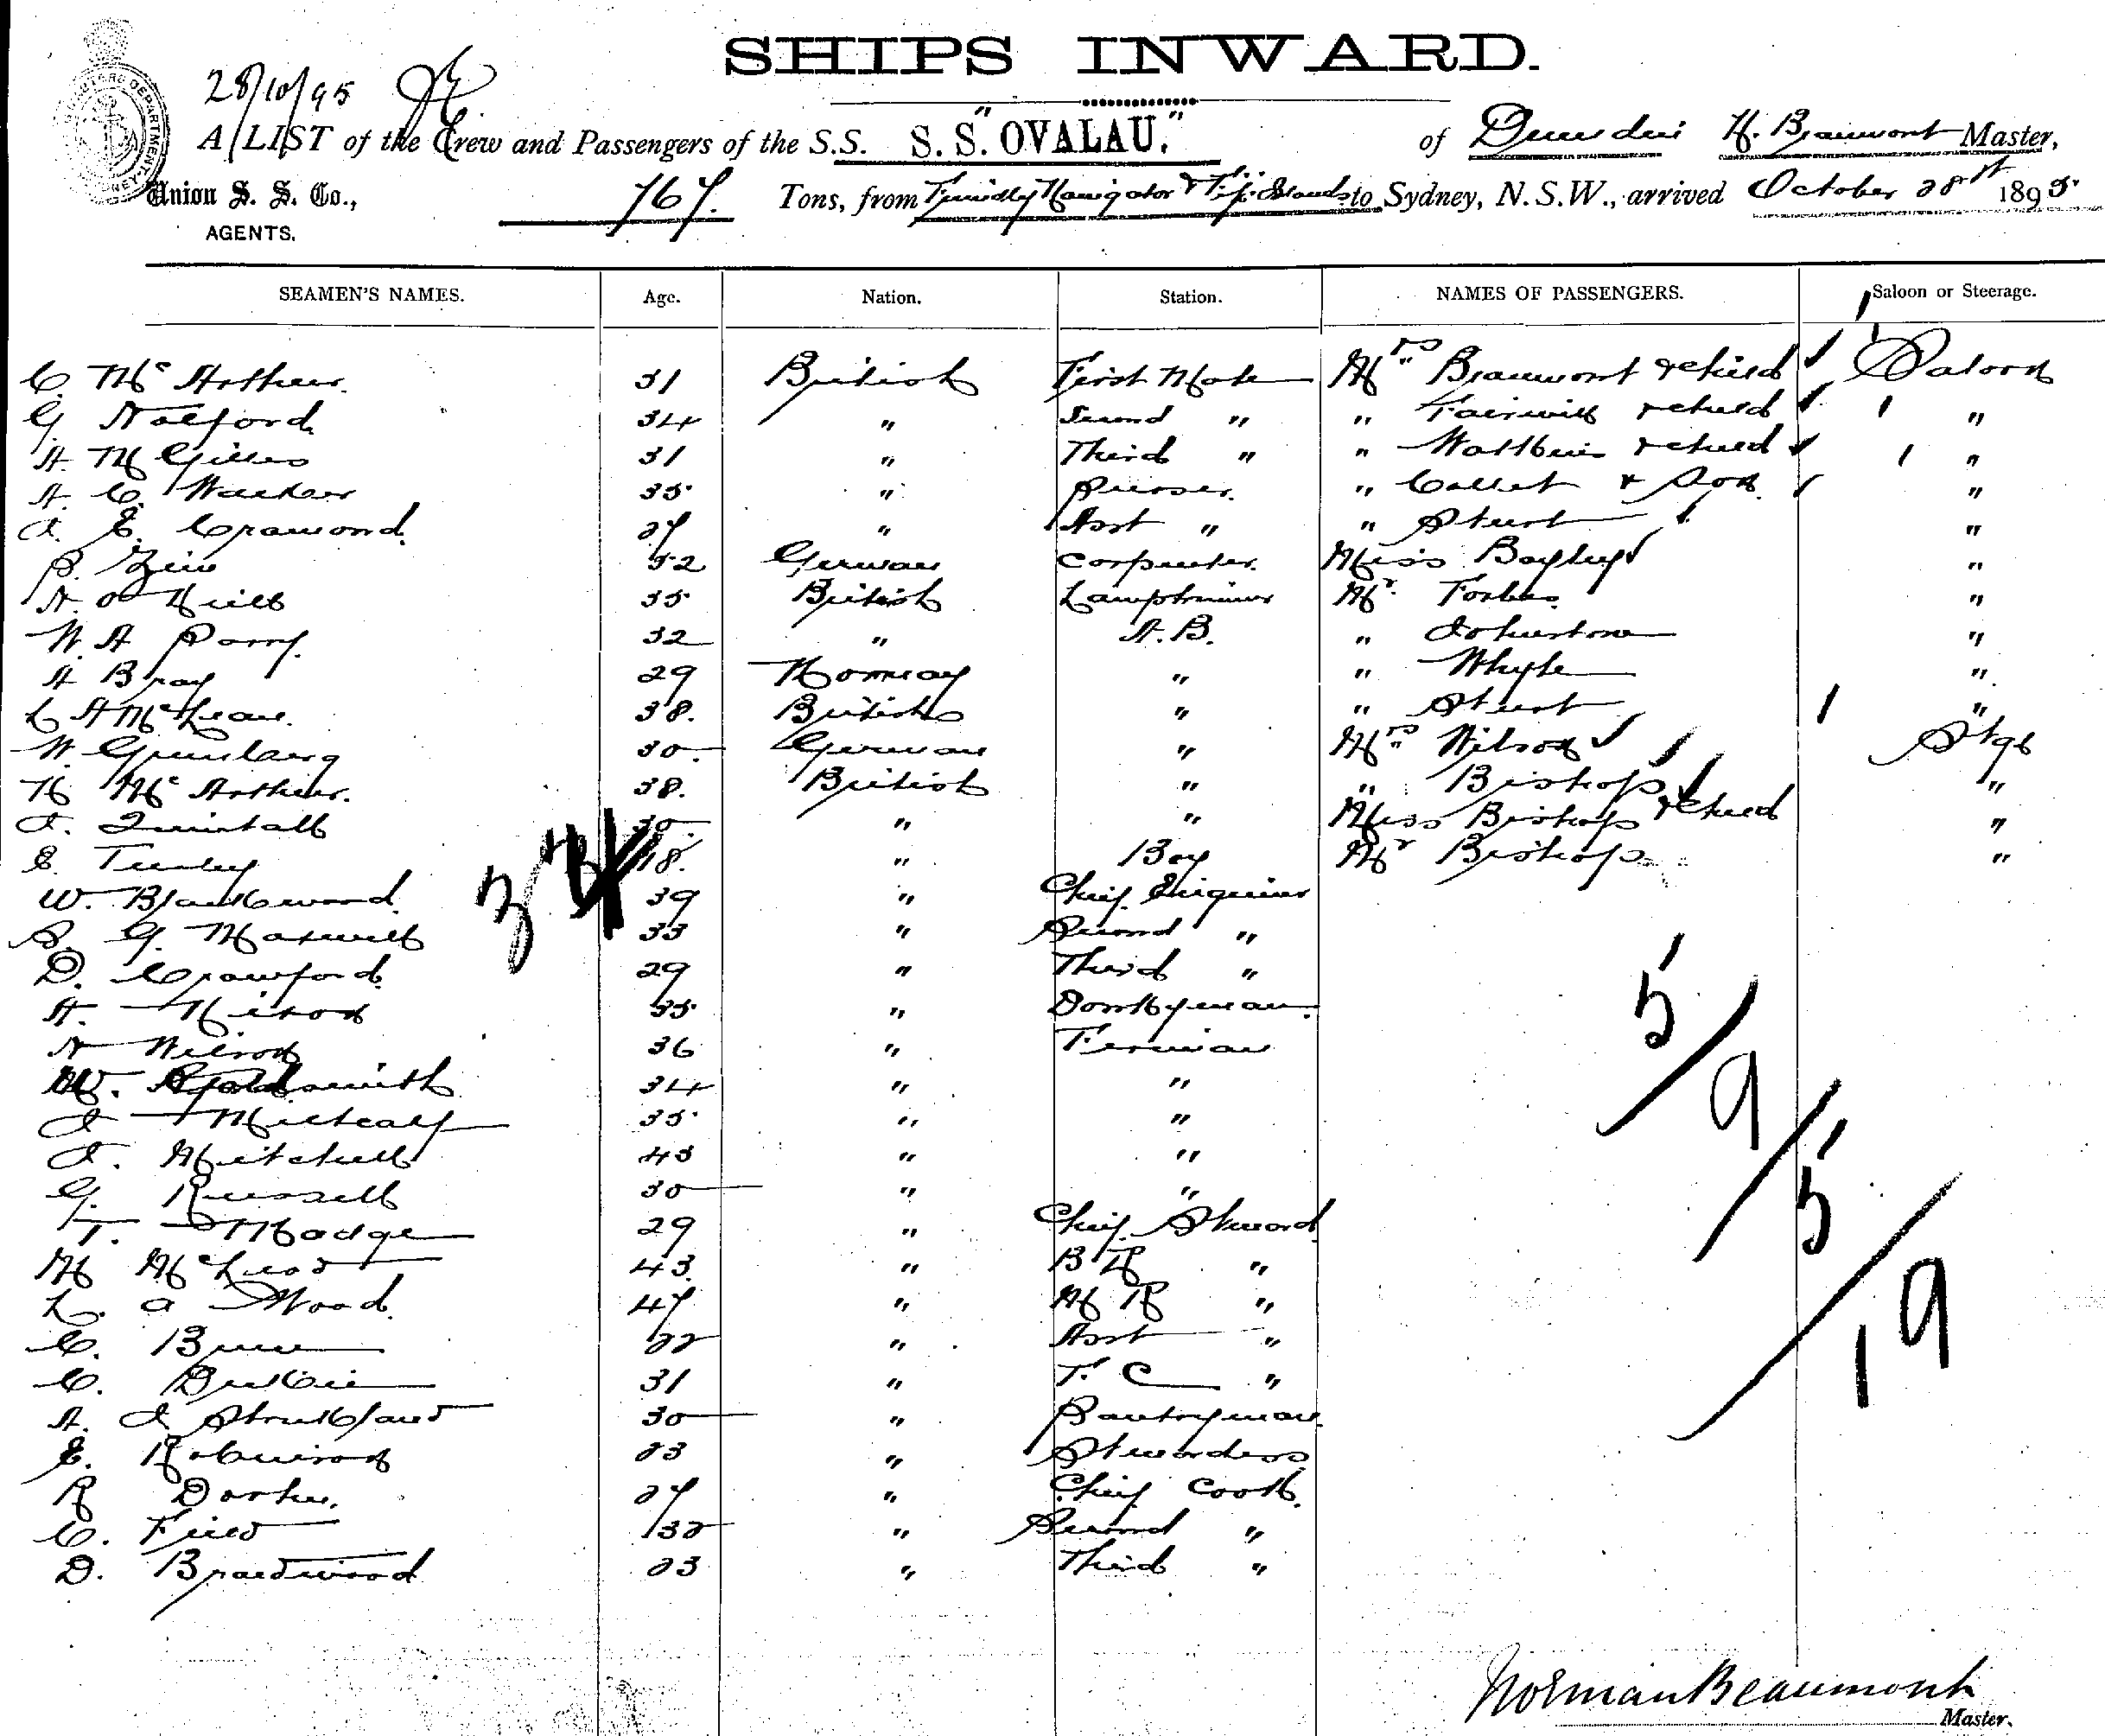 SHIPS INWARD.
28/10/95
A LIST of the Crew and Passengers of the S.S. S.S. "OVALAU," of Dunedin N. Beaumont Master,
Union S. S. Co., 767. Tons, from Friendly Navigator & Fiji Islands to Sydney, N.S.W., arrived October 28th 1895.
AGENTS.
SEAMEN'S NAMES. Age. Nation. Station. NAMES OF PASSENGERS. Saloon or Steerage.
C. McArthur. 31 British First Mate Mrs Beaumont & child Saloon
G. 34 " Second " " & child "
A. McGilles 31 " Third " " & child "
A. C. 35 " Purser. " Collet & Son "
J. E. Cramond. 27 " Asst " " Sturt "
52 German Carpenter. Miss Bayley "
N. O'Neill 35 British Lamptrimmer Mr. Forbes "
W. A Parry. 32 " A.B. " Johnstone "
A Bray 29 Norway " " Whyte "
L A McLean. 38. British " " Sturt "
W. 30 German " Mrs Wilson Stge
McArthur. 38. British " " Bishop "
J. Quintall 30 " " Miss Bishop & child "
E. 18. " Boy Mr Bishop "
W. Blackwood. 39 " Chief Engineer
G. Maxwell 33 " Second "
D. Crawford. 29 " Third "
A. Nixon 35 " Donkeyman.
N Wilson 36 " Fireman
W. Goldsmith 34 " "
J Metcalf 35 " "
J. Mitchell 43 " "
G. Russell 30 " "
T. Madge 29 " Chief Steward
M McLeod 43 " B R "
L. a Wood. 47 " "
C. 22 " Asst "
C. 31 " F. C "
A. J Strickland 30 " Pantryman.
E. Robinson 23 " Stewardess
R 27 " Chief Cook.
C. Field 32 " Second "
D. Braidwood 23 " Third "
34
5/9/5/19
Norman Beaumont
Master.